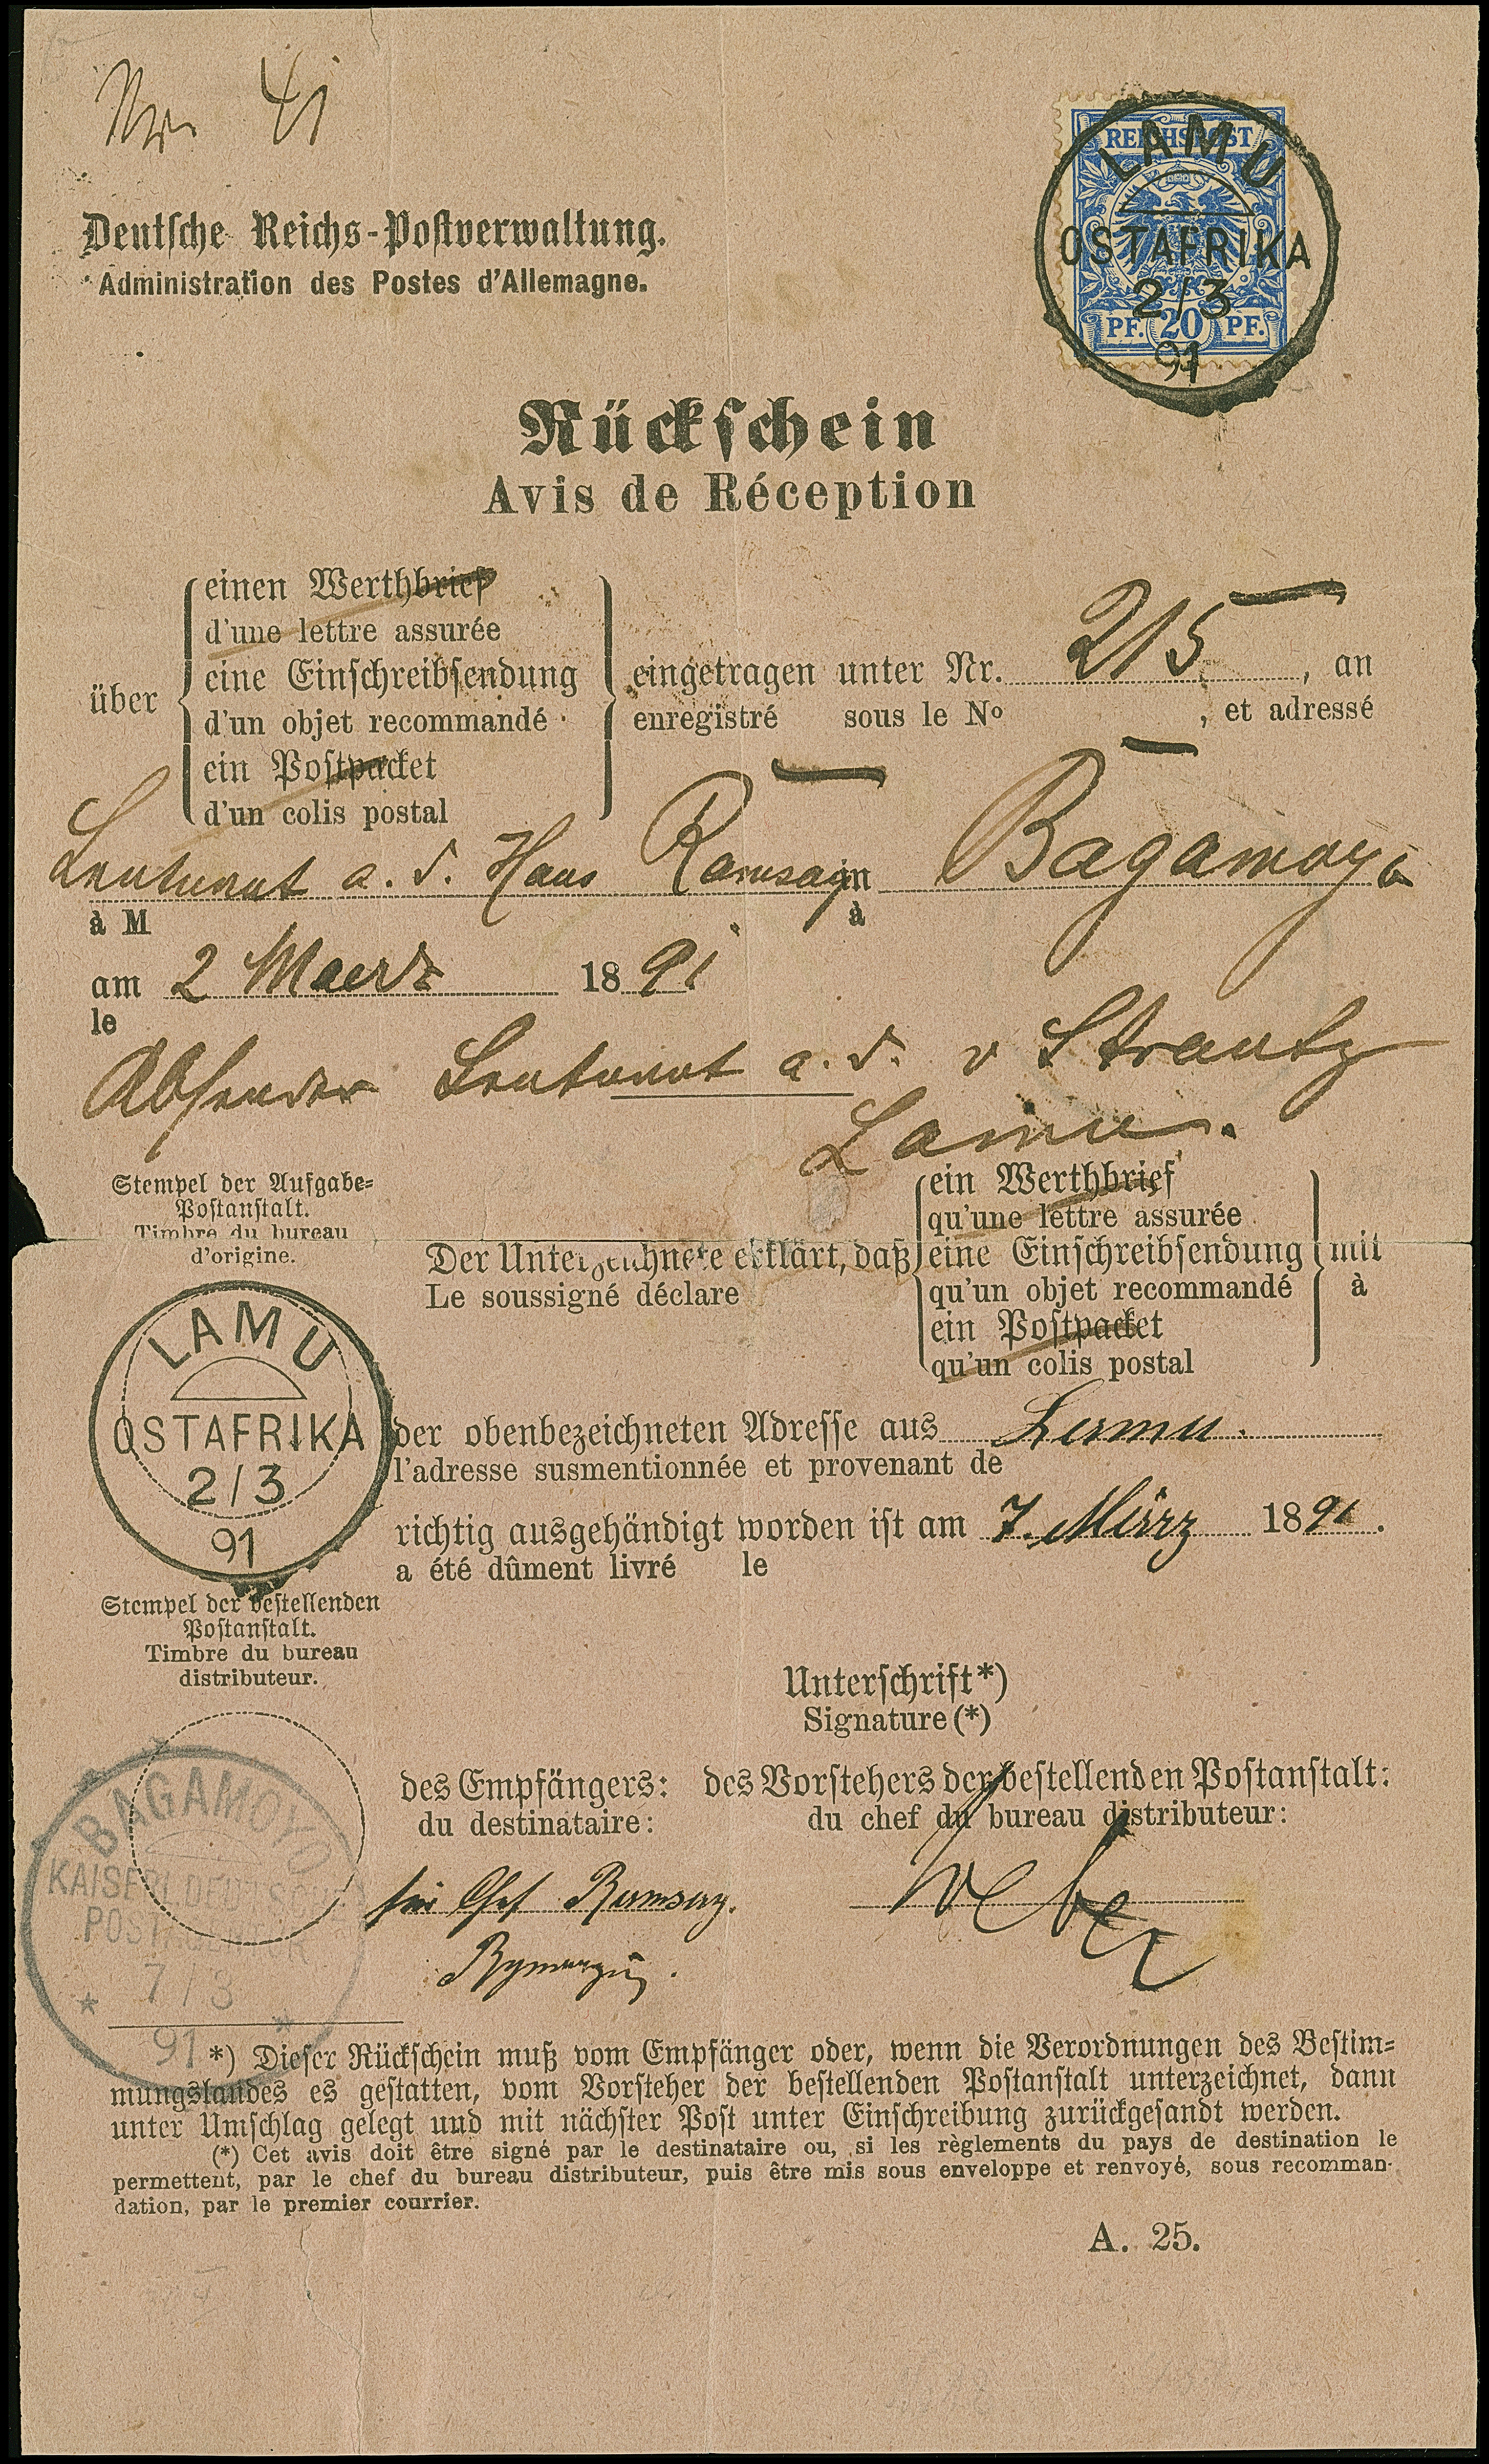 Nr. 41
REICHSPOST
PF. 20 PF.
LAMU
OSTAFRIKA
2/3
91
Deutsche Reichs-Postverwaltung.
Administration des Postes d'Allemagne.
Rückschein
Avis de Réception
über
einen Werthbrief
d'une lettre assurée
eine Einschreibsendung
d'un objet recommandé
ein Postpacket
d'un colis postal
eingetragen unter Nr. 215, an
enregistré sous le No , et adressé
Leutnant a. d. Hans Ramsay in Bagamoyo
à M à
am 2 Maerz 1891
le
Absender Leutnant a. d. v Strantz
Lamu.
Stempel der Aufgabe-
Postanstalt.
Timbre du bureau
d'origine.
Der Unterzeichnete erklärt, daß
Le soussigné déclare
ein Werthbrief
qu'une lettre assurée
eine Einschreibsendung
qu'un objet recommandé
ein Postpacket
qu'un colis postal
mit
à
LAMU
OSTAFRIKA
2/3
91
der obenbezeichneten Adresse aus Lamu.
l'adresse susmentionnée et provenant de
richtig ausgehändigt worden ist am 7. März 1891.
a été dûment livré le
Stempel der bestellenden
Postanstalt.
Timbre du bureau
distributeur.
Unterschrift*)
Signature (*)
des Empfängers: des Vorstehers der bestellenden Postanstalt:
du destinataire: du chef du bureau distributeur:
BAGAMOYO
KAISERL. DEUTSCHE
POSTAGENTUR
7/3
91
für Chef Ramsay.
Weber
*) Dieser Rückschein muß vom Empfänger oder, wenn die Verordnungen des Bestim-
mungslandes es gestatten, vom Vorsteher der bestellenden Postanstalt unterzeichnet, dann
unter Umschlag gelegt und mit nächster Post unter Einschreibung zurückgesandt werden.
(*) Cet avis doit être signé par le destinataire ou, si les règlements du pays de destination le
permettent, par le chef du bureau distributeur, puis être mis sous enveloppe et renvoyé, sous recomman-
dation, par le premier courrier.
A. 25.